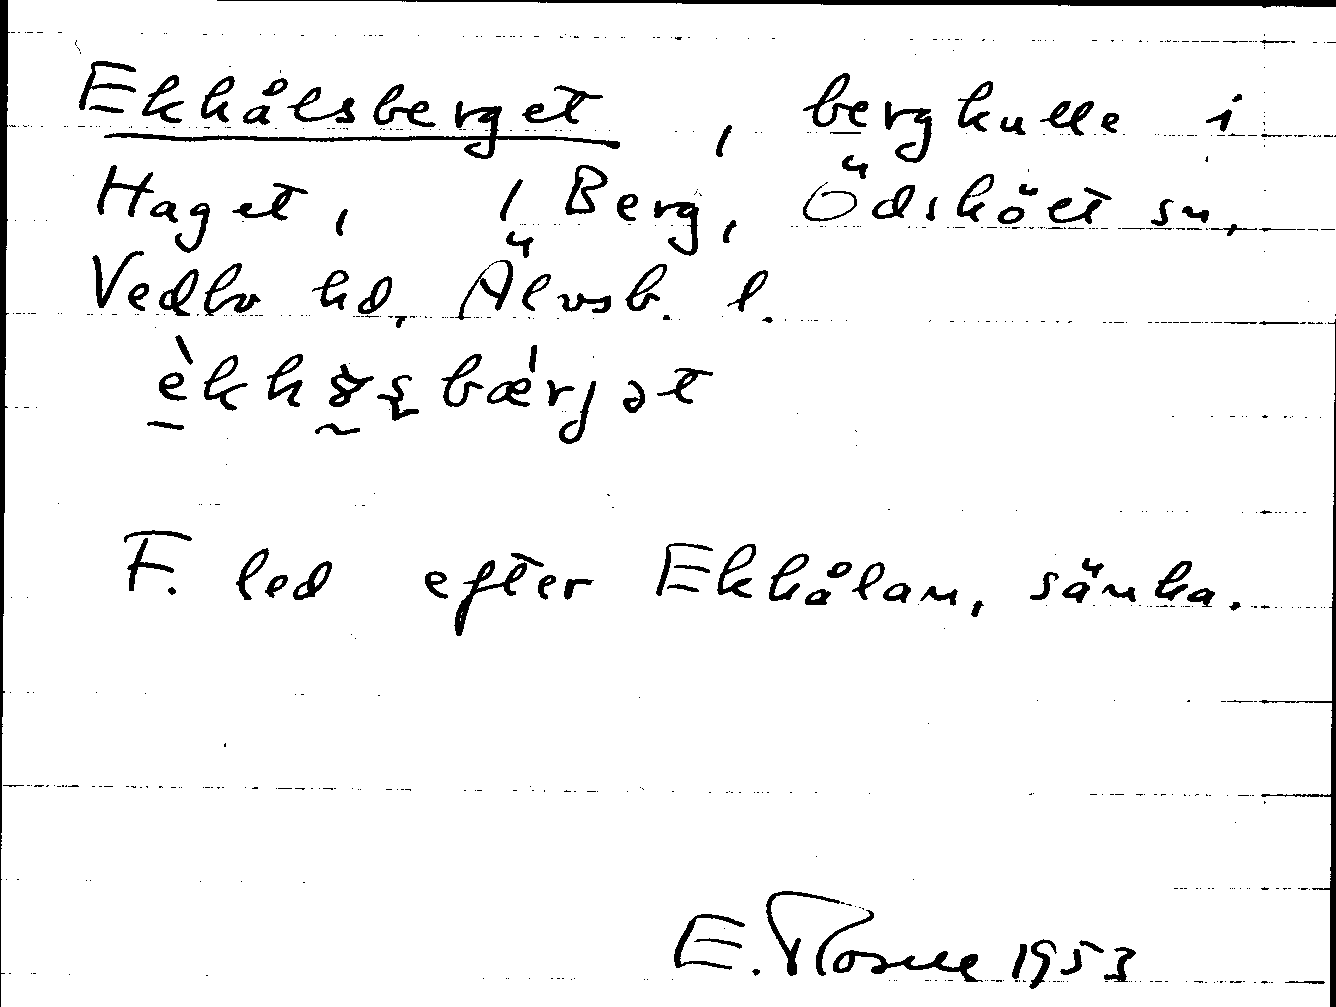 Ekhålsberget, bergkulle i
Haget, 1 Berg, Ödskölt sn,
Vedbo hd, Älvsb. l.
F. led efter Ekhålan, sänka.
E. 1953